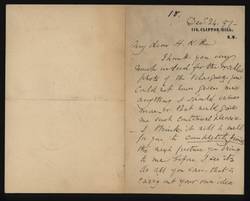 18.
Dec 24. 97
118, CLIFTON HILL,
N.W.
My dear H. K.
Thank you very
much indeed for the
photo of the you
could not have given me
anything I should value
more. But will give
me such continued pleasure
I think it will be well
for you to completely finish
the next picture you bring
to me before I see it
as all you can that is
carry out your own idea